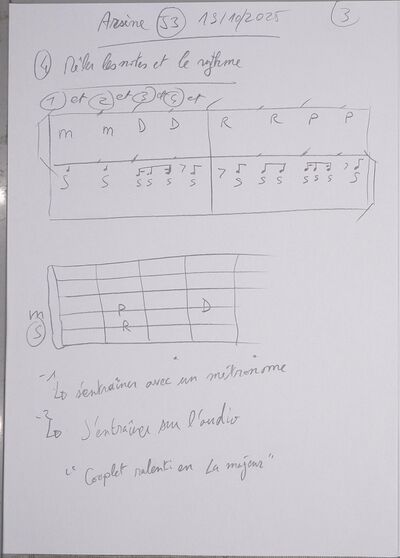 Arsène S3 19/10/2025 3
4 Mêler les notes et le rythme
1 et 2 et 3 et 4 et
m m D D R R P P
S S S S S 7 S 7 S S S S S S 7 S
P D
m
S R
-1
↳ s'entraîner avec un métronome
-2
↳ S'entraîner sur l'audio
"Couplet ralenti en La majeur"